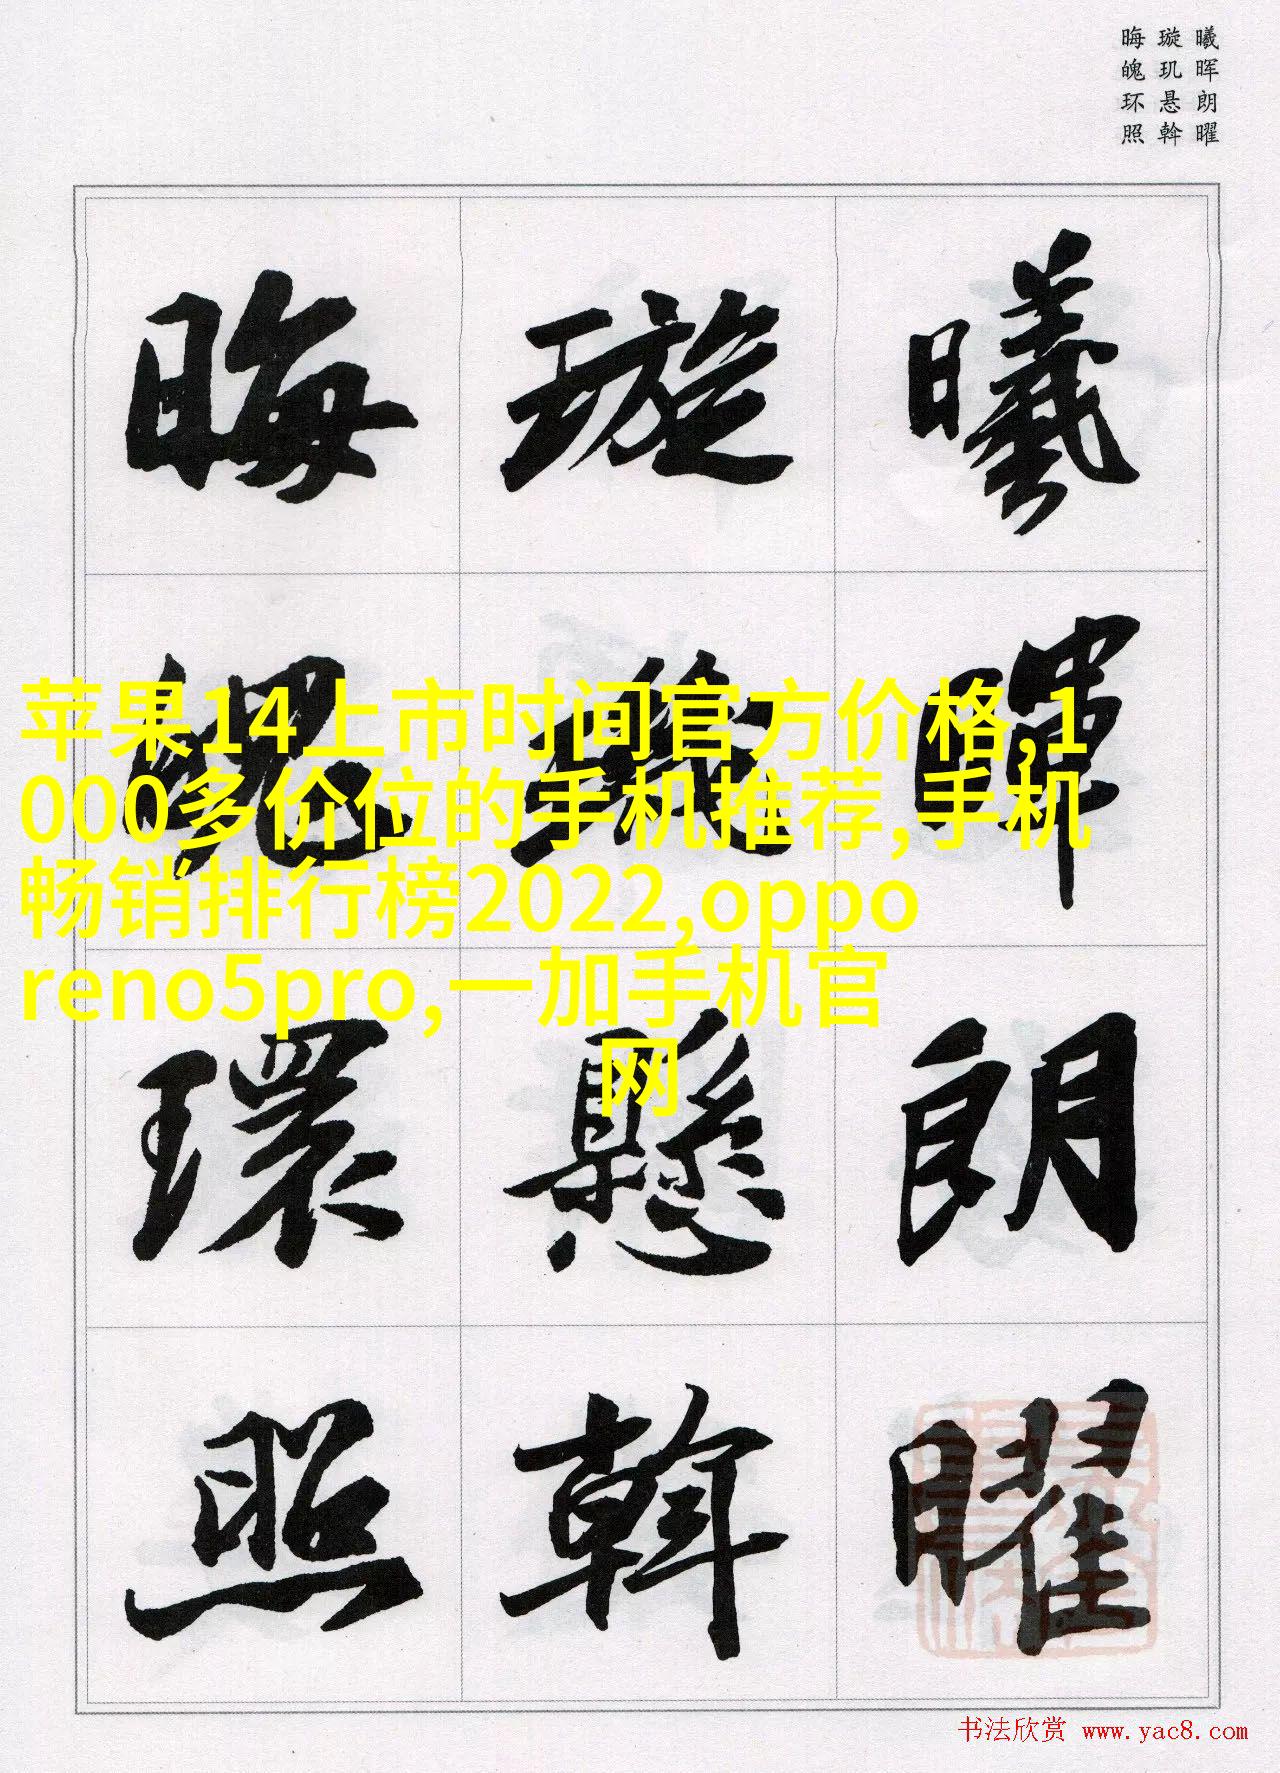 曦晖朗曜
璇玑悬斡
晦魄环照
曦暉朗曜
璇璣懸斡
晦魄環照
苹果14上市时间官方价格,1
000多价位的手机推荐,手机
畅销排行榜2022,oppo
reno5pro,一加手机官
网
书法欣赏 www.yac8.com